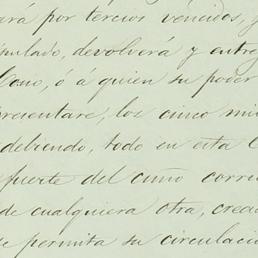 ará por tercios vencidos, y
pulado, devolverá y entreg
llano, ó á quien su poder
presentare, los cinco mil
debiendo, todo en esta C
fuerte del cuño corrie
de cualquiera otra, cread
se permita su circulació